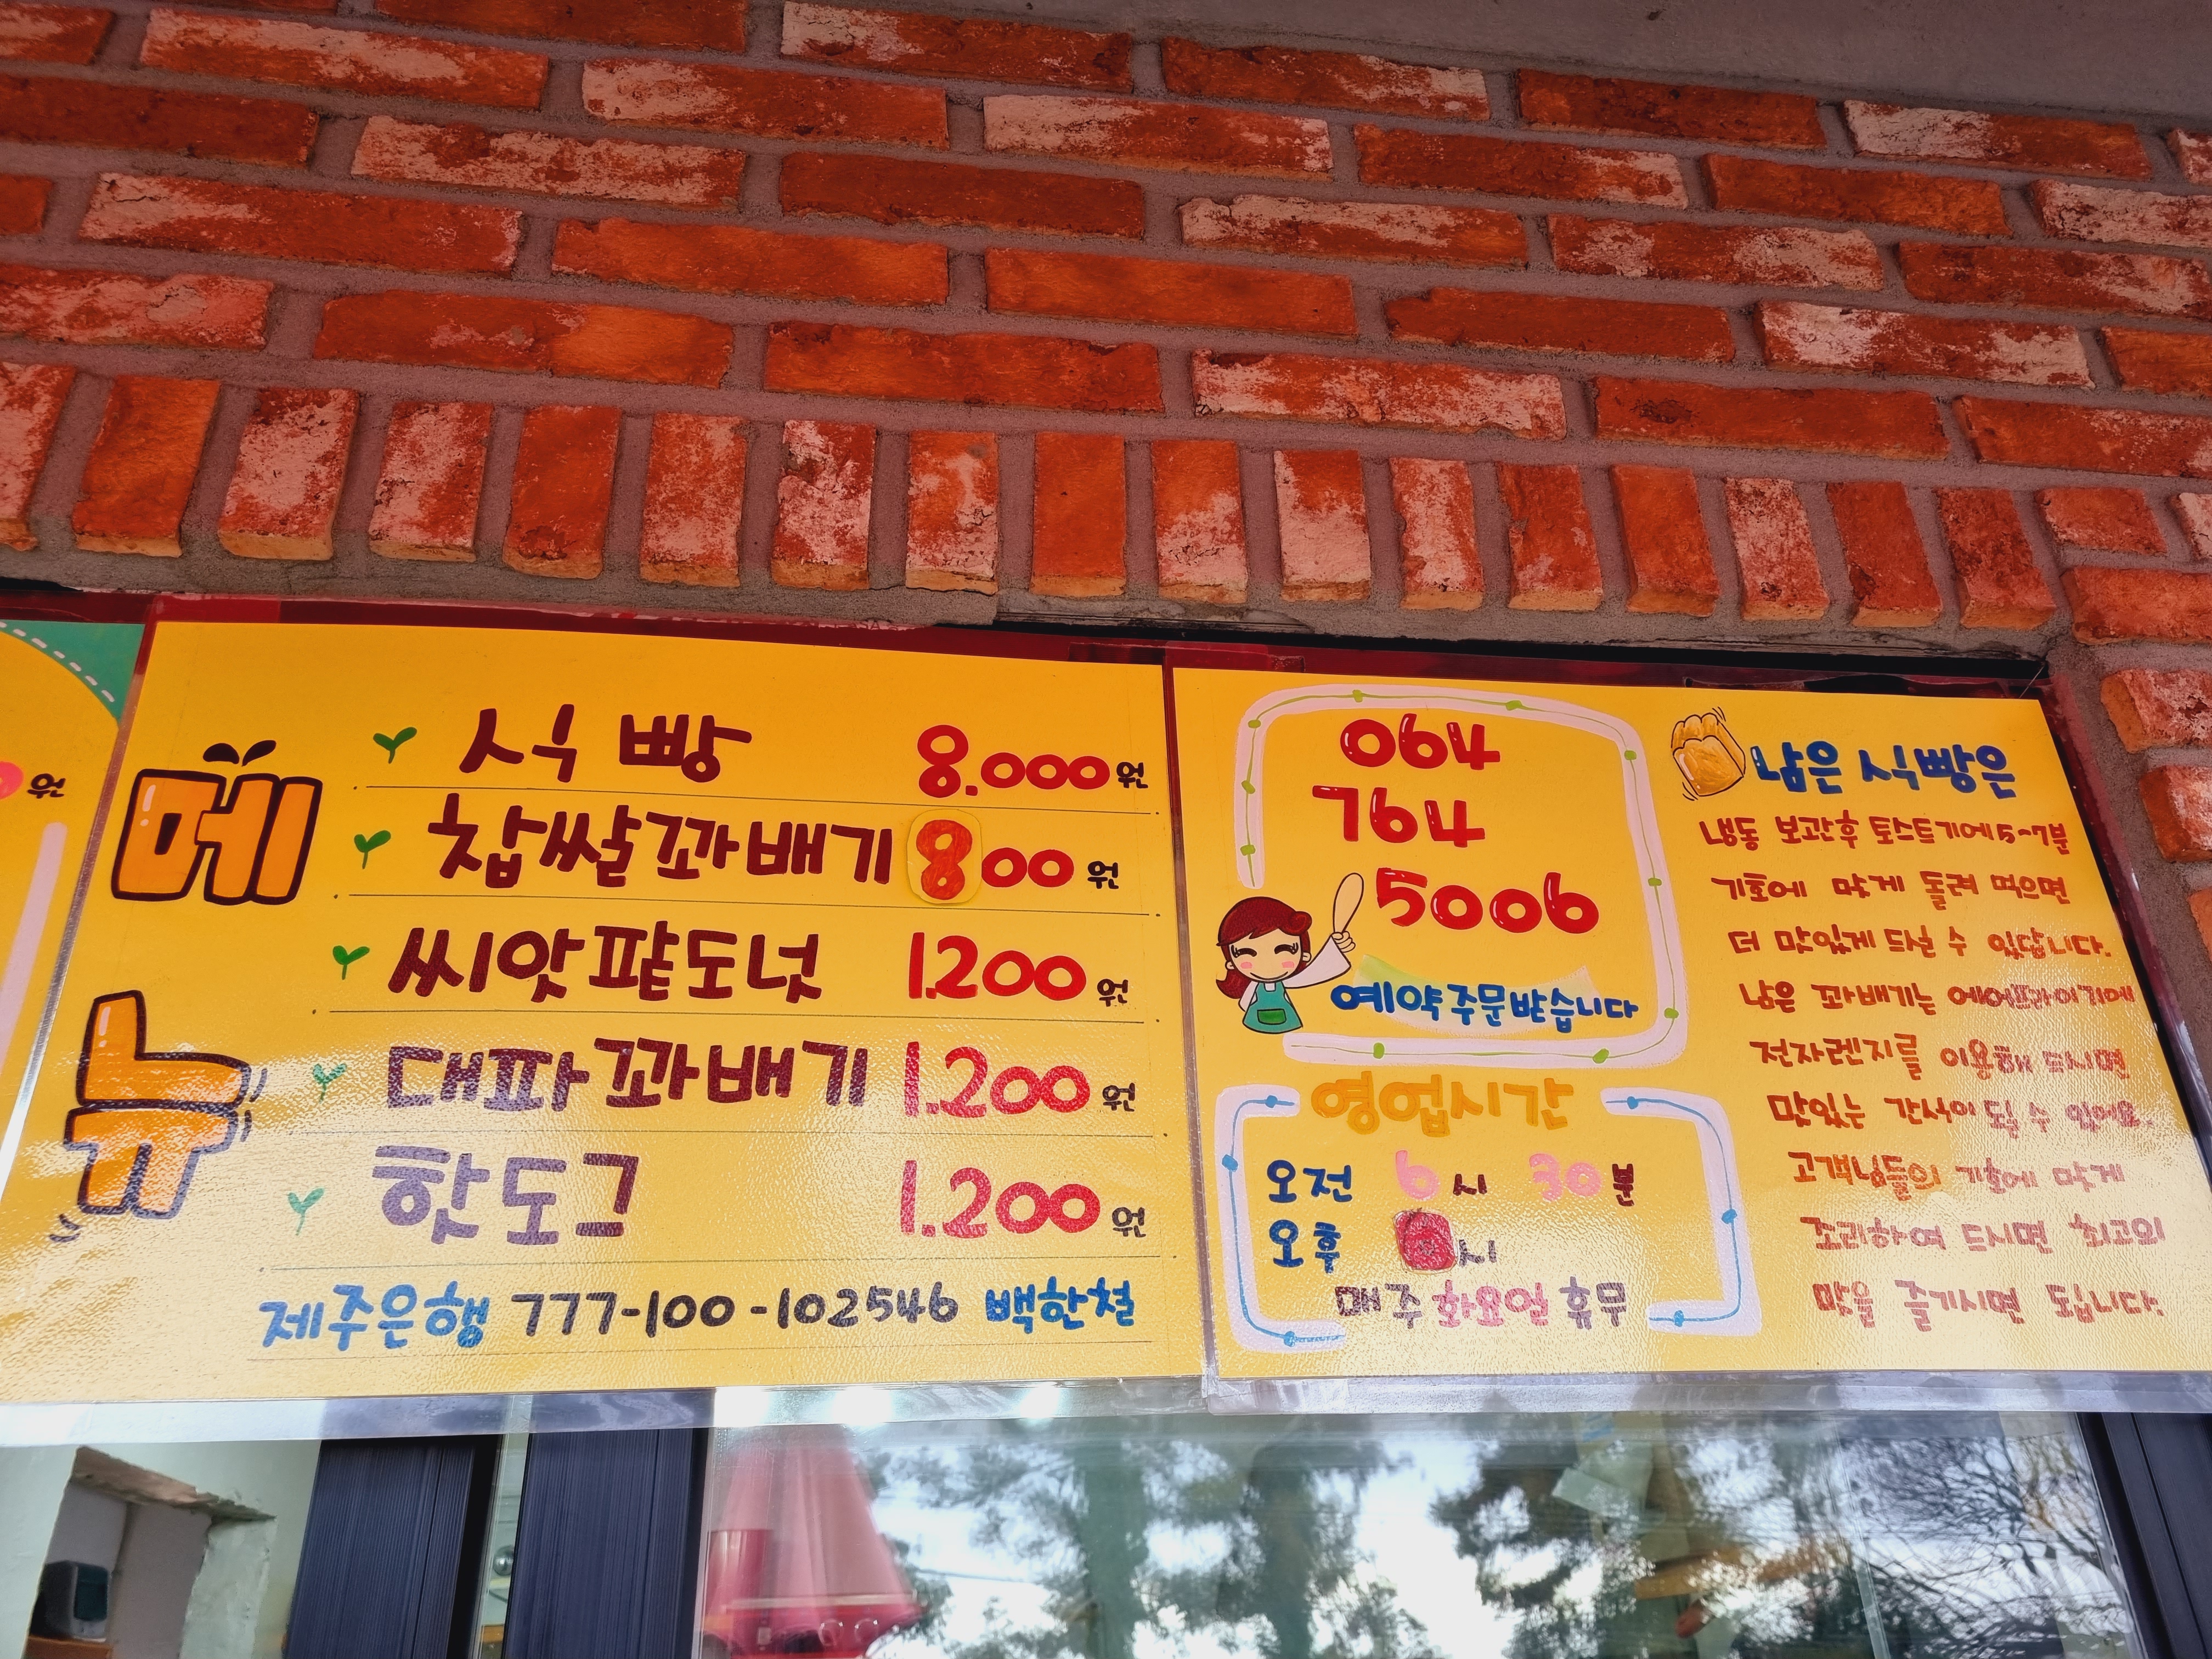 원
메뉴
식빵 8.000원
찹쌀꽈배기 800원
씨앗팥도넛 1.200원
대파꽈배기 1.200원
핫도그 1.200원
제주은행 777-100-102546 백한철
064
764
5006
예약주문받습니다
영업시간
오전 6시 30분
오후 시
매주 화요일 휴무
남은 식빵은
냉동 보관후 토스트기에 5~7분
기호에 맞게 돌려 먹으면
더 맛있게 드실 수 있답니다.
남은 꽈배기는 에어프라이기에
전자렌지를 이용해 드시면
맛있는 간식이 될 수 있어요.
고객님들의 기호에 맞게
조리하여 드시면 최고의
맛을 즐기시면 됩니다.